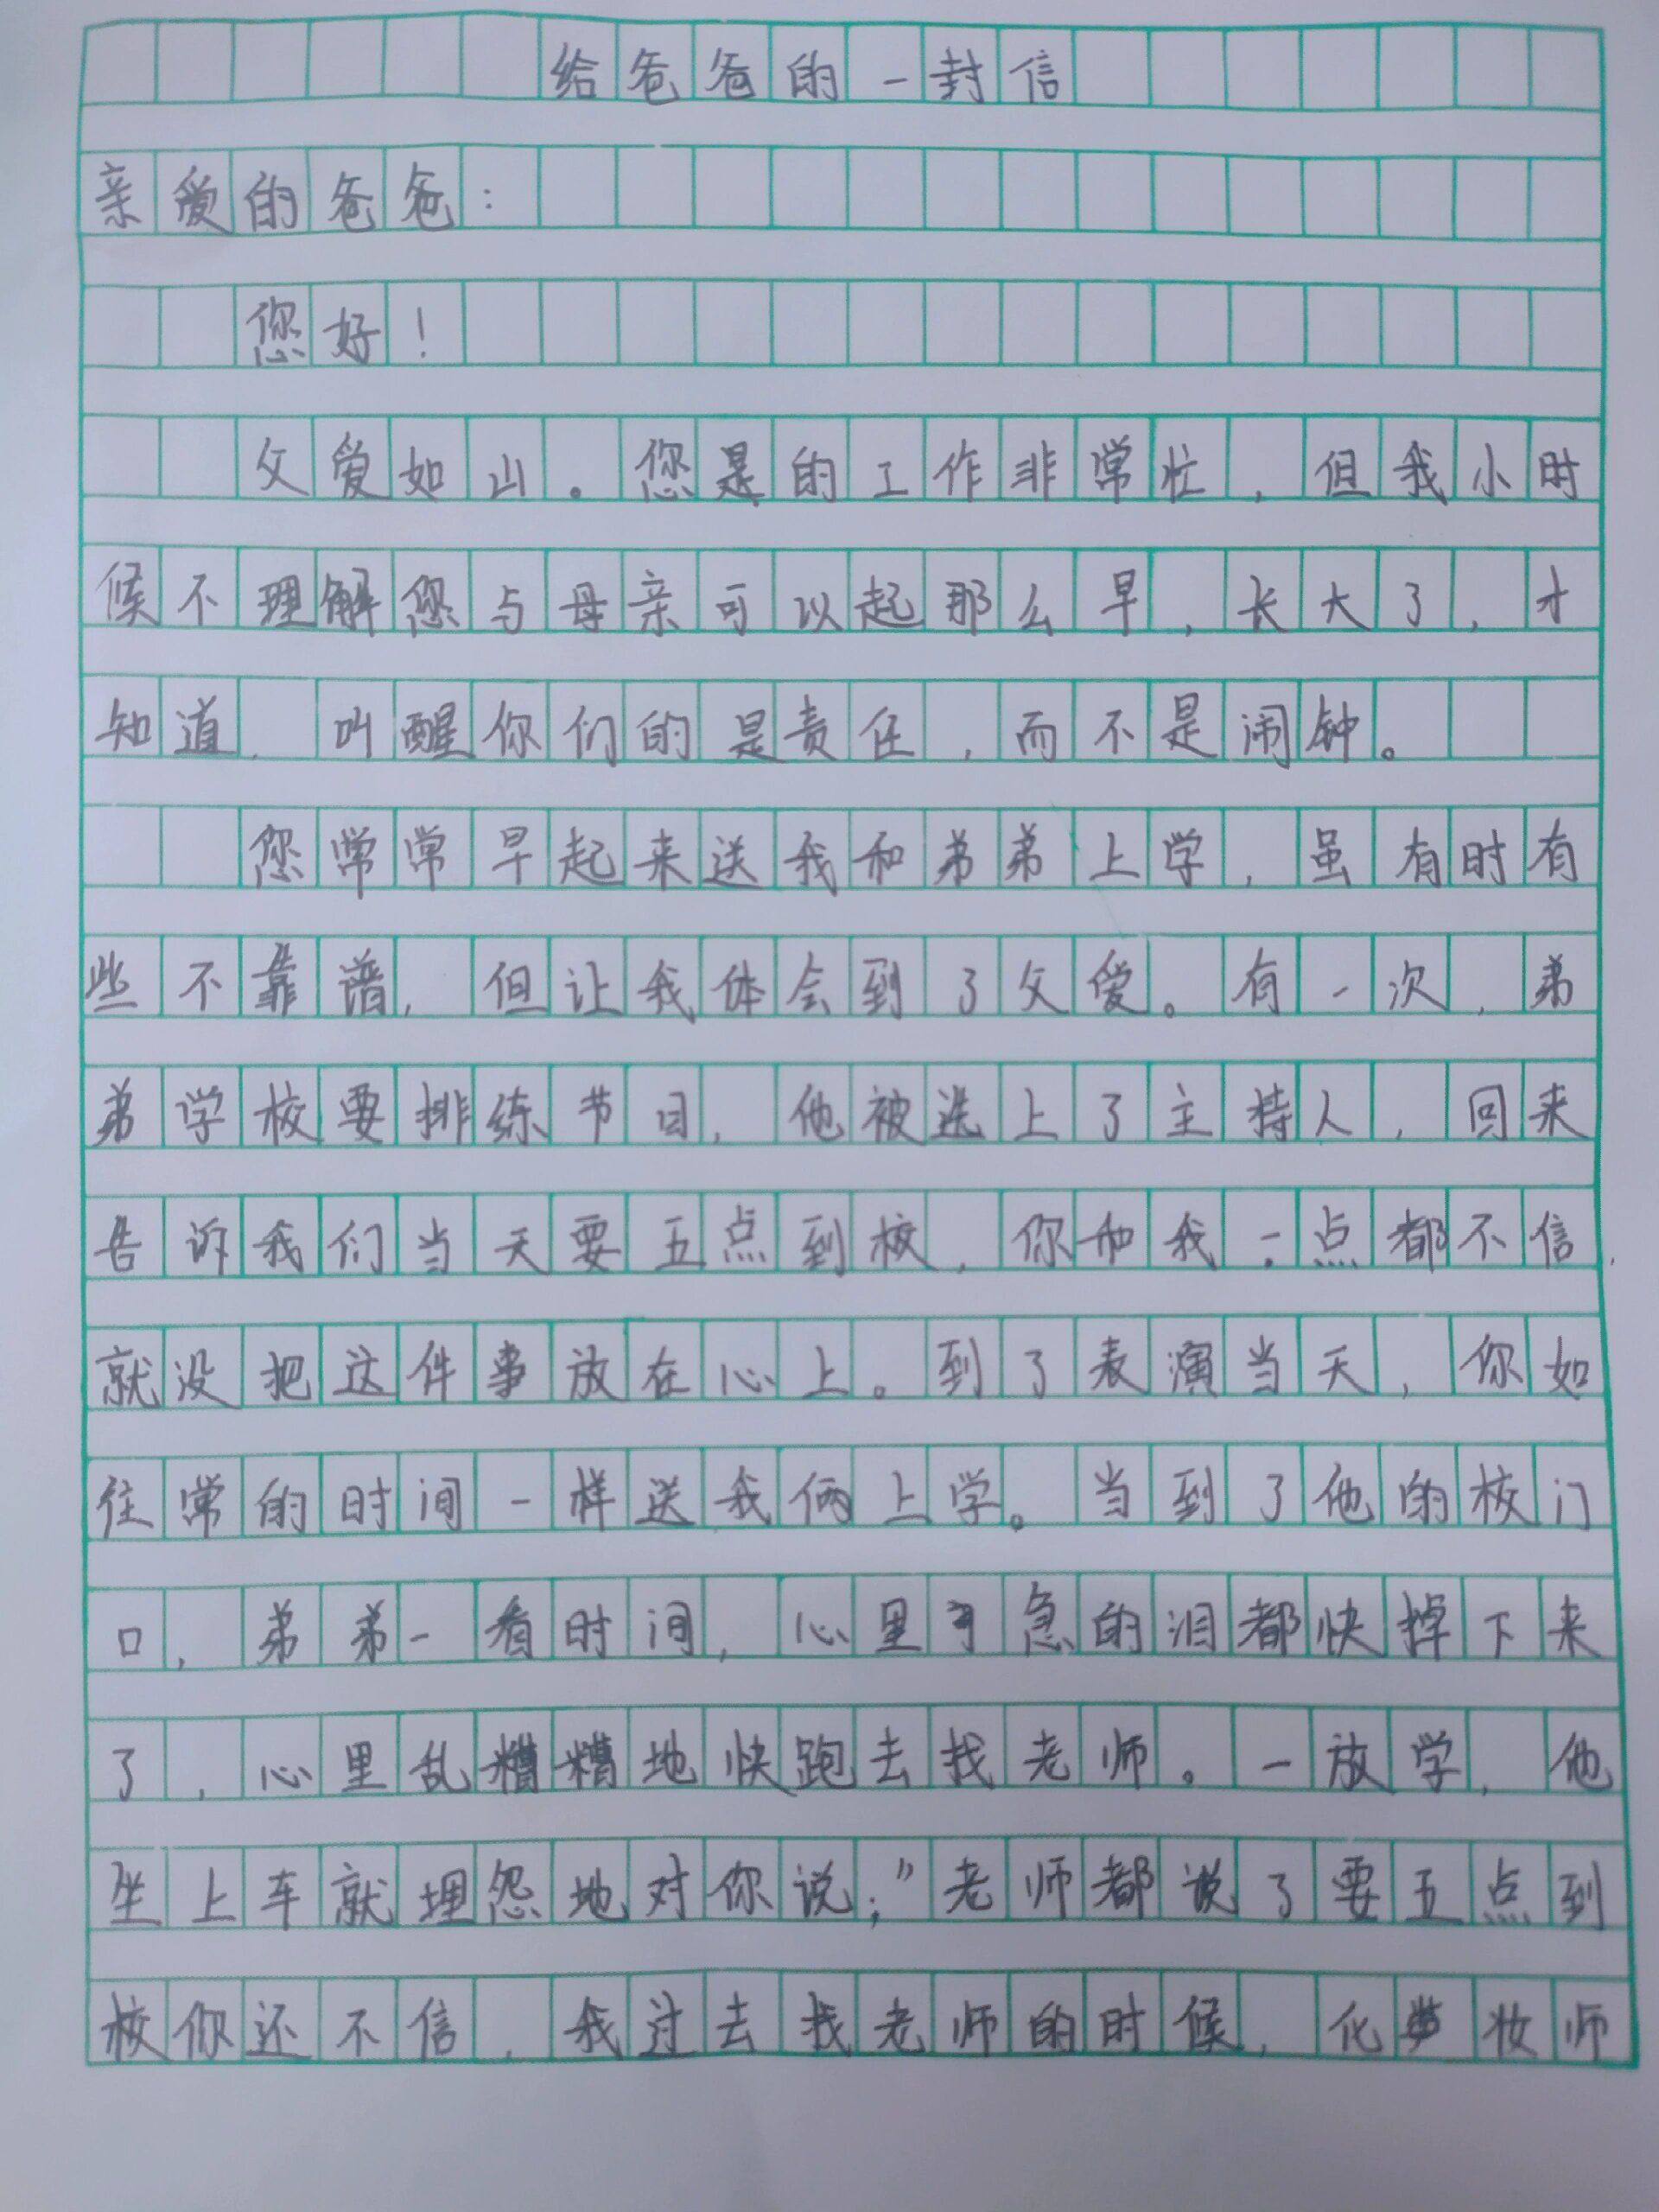 给爸爸的一封信
亲爱的爸爸:
您好!
父爱如山。您是的工作非常忙,但我小时
候不理解您与母亲可以起那么早,长大了,才
知道,叫醒你们的是责任,而不是闹钟。
您常常早起来送我和弟弟上学,虽有时有
些不靠谱,但让我体会到了父爱。有一次,弟
弟学校要排练节目,他被选上了主持人,回来
告诉我们当天要五点到校,你和我一点都不信,
就没把这件事放在心上。到了表演当天,你如
往常的时间一样送我俩上学。当到了他的校门
口,弟弟一看时间,心里急的泪都快掉下来
了,心里乱糟糟地快跑去找老师。一放学,他
坐上车就埋怨地对你说;"老师都说了要五点到
校你还不信,我过去找老师的时候,化妆师